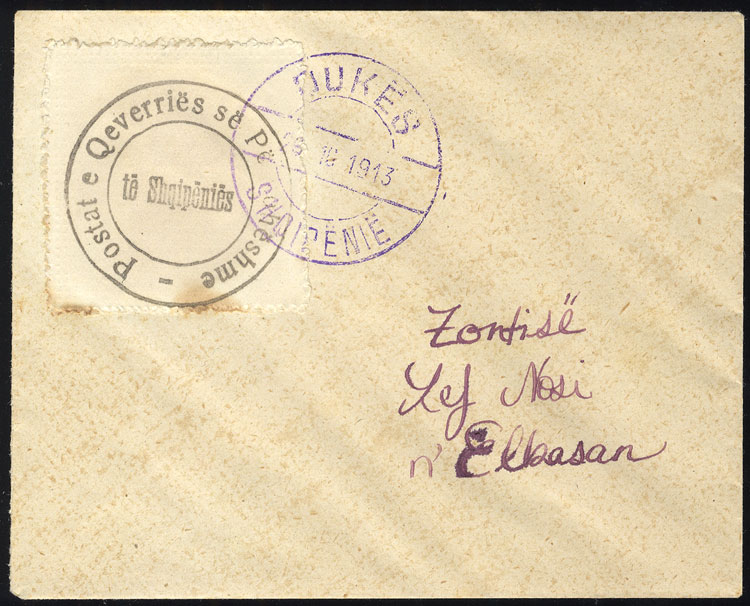 Postat e Qeverriës së Për
të Shqipëniës
DUKËS
1913
SHQIPËNIË
Zontisë
Lef Nosi
n' Elbasan